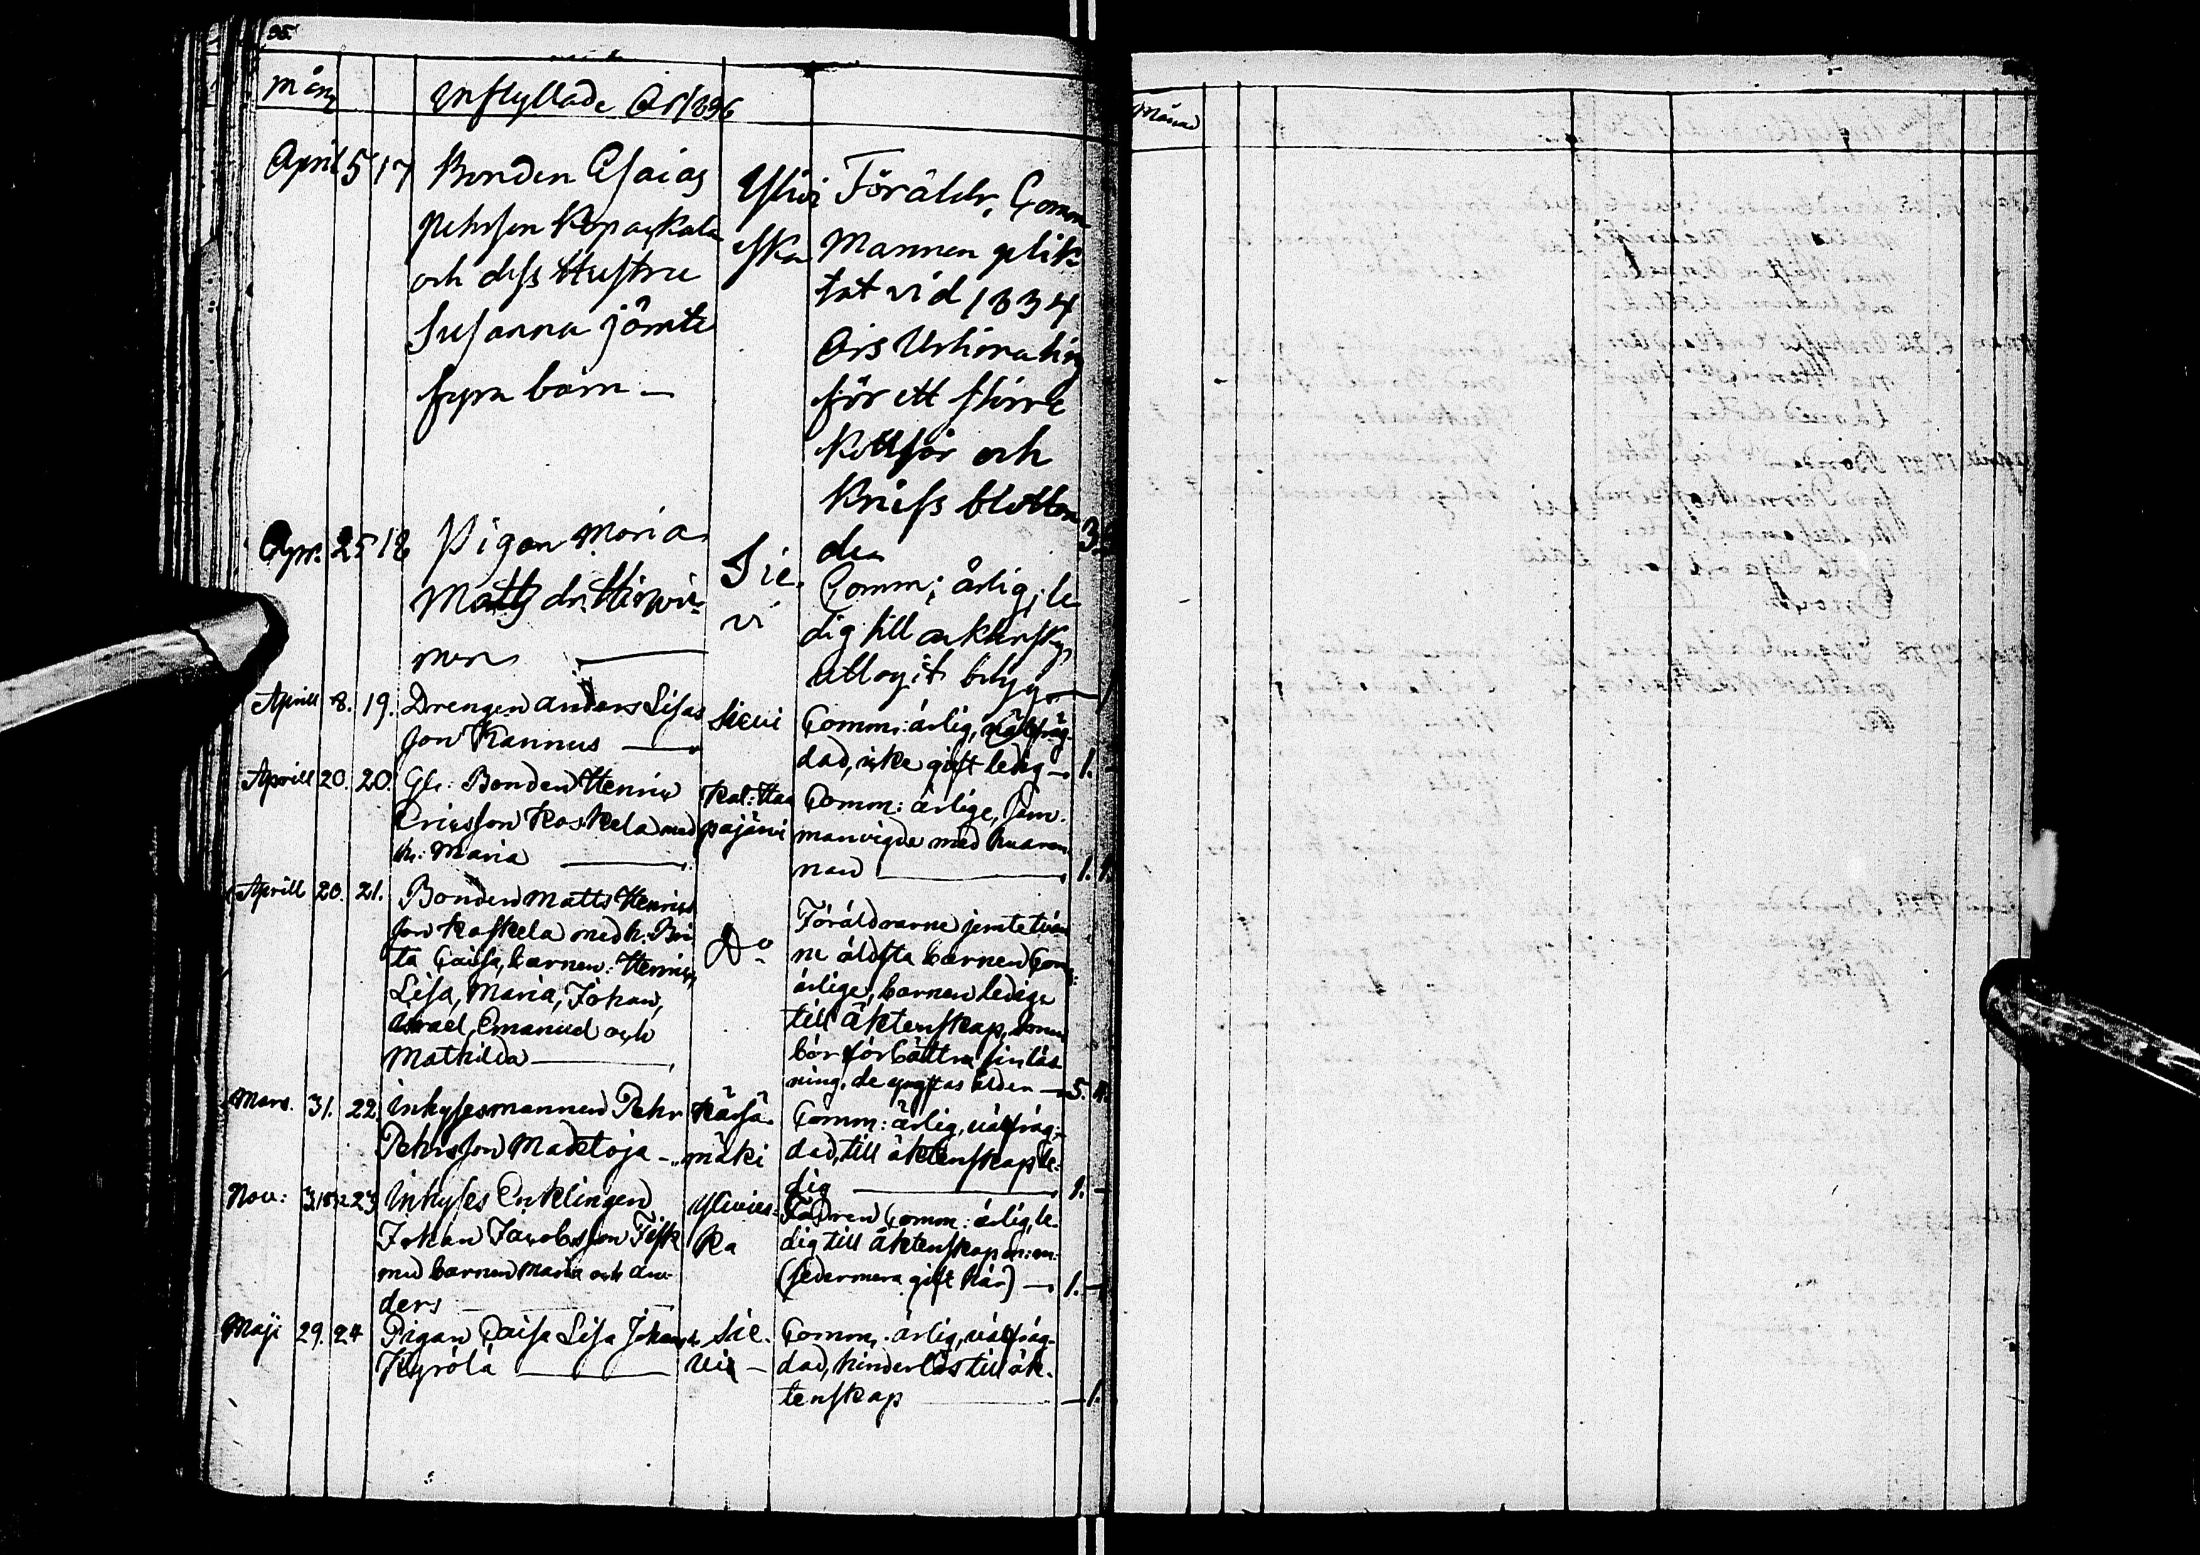 35.
Mån Inflyllade År 1836
April 5 17 Bonden Esaias
Pehrsson Kopackala
och dess Hustru
Susanna jömte
fyra barn —
Ylivi
eska
Föräldr. Comm
Mannen plik-
tat vid 1834
Års
för ett större
och
3.
Apr. 25 18 Pigan Maria
Matts dr.
Sie.
vi
Comm; ärlig, le
dig till
uttagit
Aprill 8. 19. Drengen Anders Lisas
son Kannus —
Sievi
Comm: ärlig, välfräg-
dad, icke gift ledig — 1. -
Aprill 20. 20. Gl: Bonden Henric
Ericsson Koskela med
h: Maria —
Kal: Haa
pajärvi
Comm: ärlige, Sam-
manvigde med hvaran
nan — 1. 1.
Aprill 20. 21. Bonden Matts Henrics
son Koskela med h. Bri
ta Caisa, barnen: Henric,
Lisa, Maria, Johan,
Israel, Emanuel och
Mathilda —
Do
Föräldrarne jemte tvän
ne äldsta barnen Com:
ärlige, barnen ledige
till äktenskap,
bör förbättra sin läs
ning, de yngstas ålder — 5. 4.
Mars. 31. 22. Inhysesmannen Pehr
Pehrsson Maktoja —
Kärsä-
mäki
Comm: ärlig, välfräg-
dad, till äktenskap le-
dig — 1. -
Nov: 3 23 Inhyses Enklingen
Johan Jacobsson Fisk
med barnen Maria och An-
ders —
Ylivies-
ka
Fadren Comm: ärlig, le-
dig till äktenskap
(sedermera gift här) — 1. -
Maji 29. 24 Pigan Caisa Lisa Johans d.
Kyrölä —
Sie-
vi —
Comm: ärlig, välfräg-
dad, hinderlös till äk-
tenskap — 1.
Månad